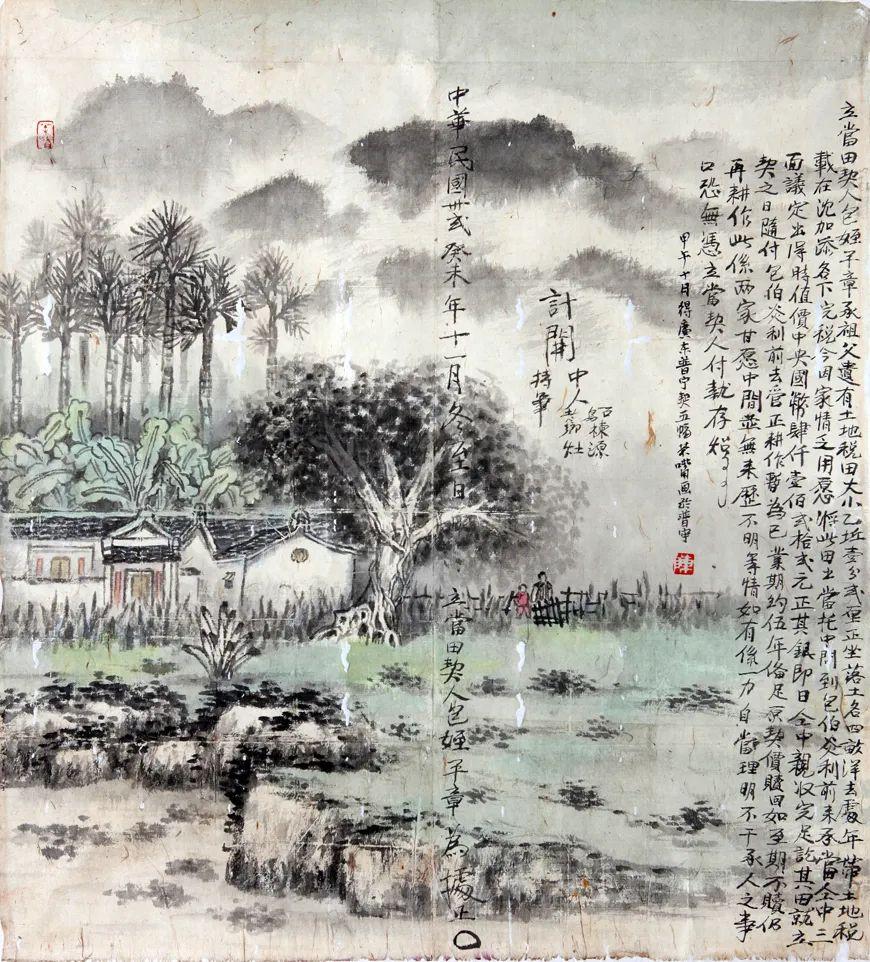 立當田契人包姪子章承祖父遺有土地税田大小乙坵壹分弍厘正坐落土名四畝洋去處年帶土地税
載在沈加添名下完税今因家情乏用愿將此田出當托中問到包伯炎利前来承當仝中三
面議定出得時值價中央國幣肆仟壹佰弍拾弍元正其銀即日仝中親收完足訖其田就立
契之日隨付包伯炎利前去管正耕作暫為己業期約伍年俻足原契價贖回如至期不贖仍
再耕作此係两家甘愿中間並無来歷不明等情如有係一力自當理明不干承人之事
口恐無憑立當契人付執存炤
甲午十月得廣东普宁契五幅 画於普宁
計開
中人
棟源
持筆
中華民國卅弍癸未年十一月冬至日
立當田契人包姪子章為據